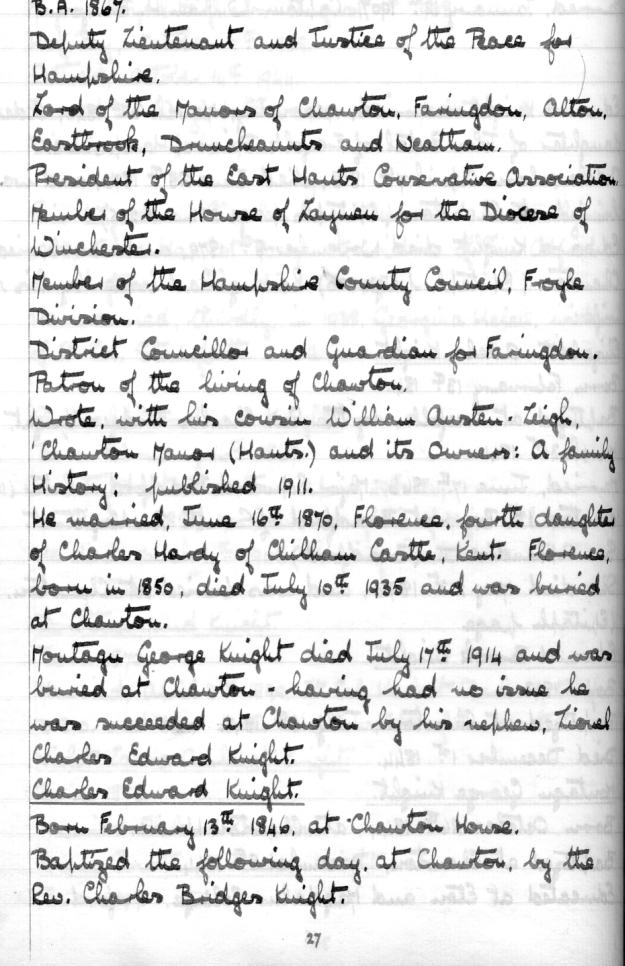 B.A. 1867.
Deputy Lieutenant and Justice of the Peace for
Hampshire.
Lord of the Manors of Chawton, Faringdon, Alton,
Eastbrook, Truncheaunts and Neatham.
President of the East Hants Conservative Association
Member of the House of Laymen for the Diocese of
Winchester.
Member of the Hampshire County Council, Froyle
Division.
District Councillor and Guardian for Faringdon.
Patron of the living of Chawton.
Wrote, with his cousin William Austen-Leigh,
'Chawton Manor (Hants.) and its Owners: A family
History': published 1911.
He married, June 16th 1870, Florence, fourth daughter
of Charles Hardy of Chilham Castle, Kent. Florence,
born in 1850, died July 10th 1935 and was buried
at Chawton.
Montagu George Knight died July 17th 1914 and was
buried at Chawton - having had no issue he
was succeeded at Chawton by his nephew, Lionel
Charles Edward Knight.
Charles Edward Knight.
Born February 13th 1846, at Chawton House.
Baptized the following day, at Chawton, by the
Rev. Charles Bridges Knight.
27